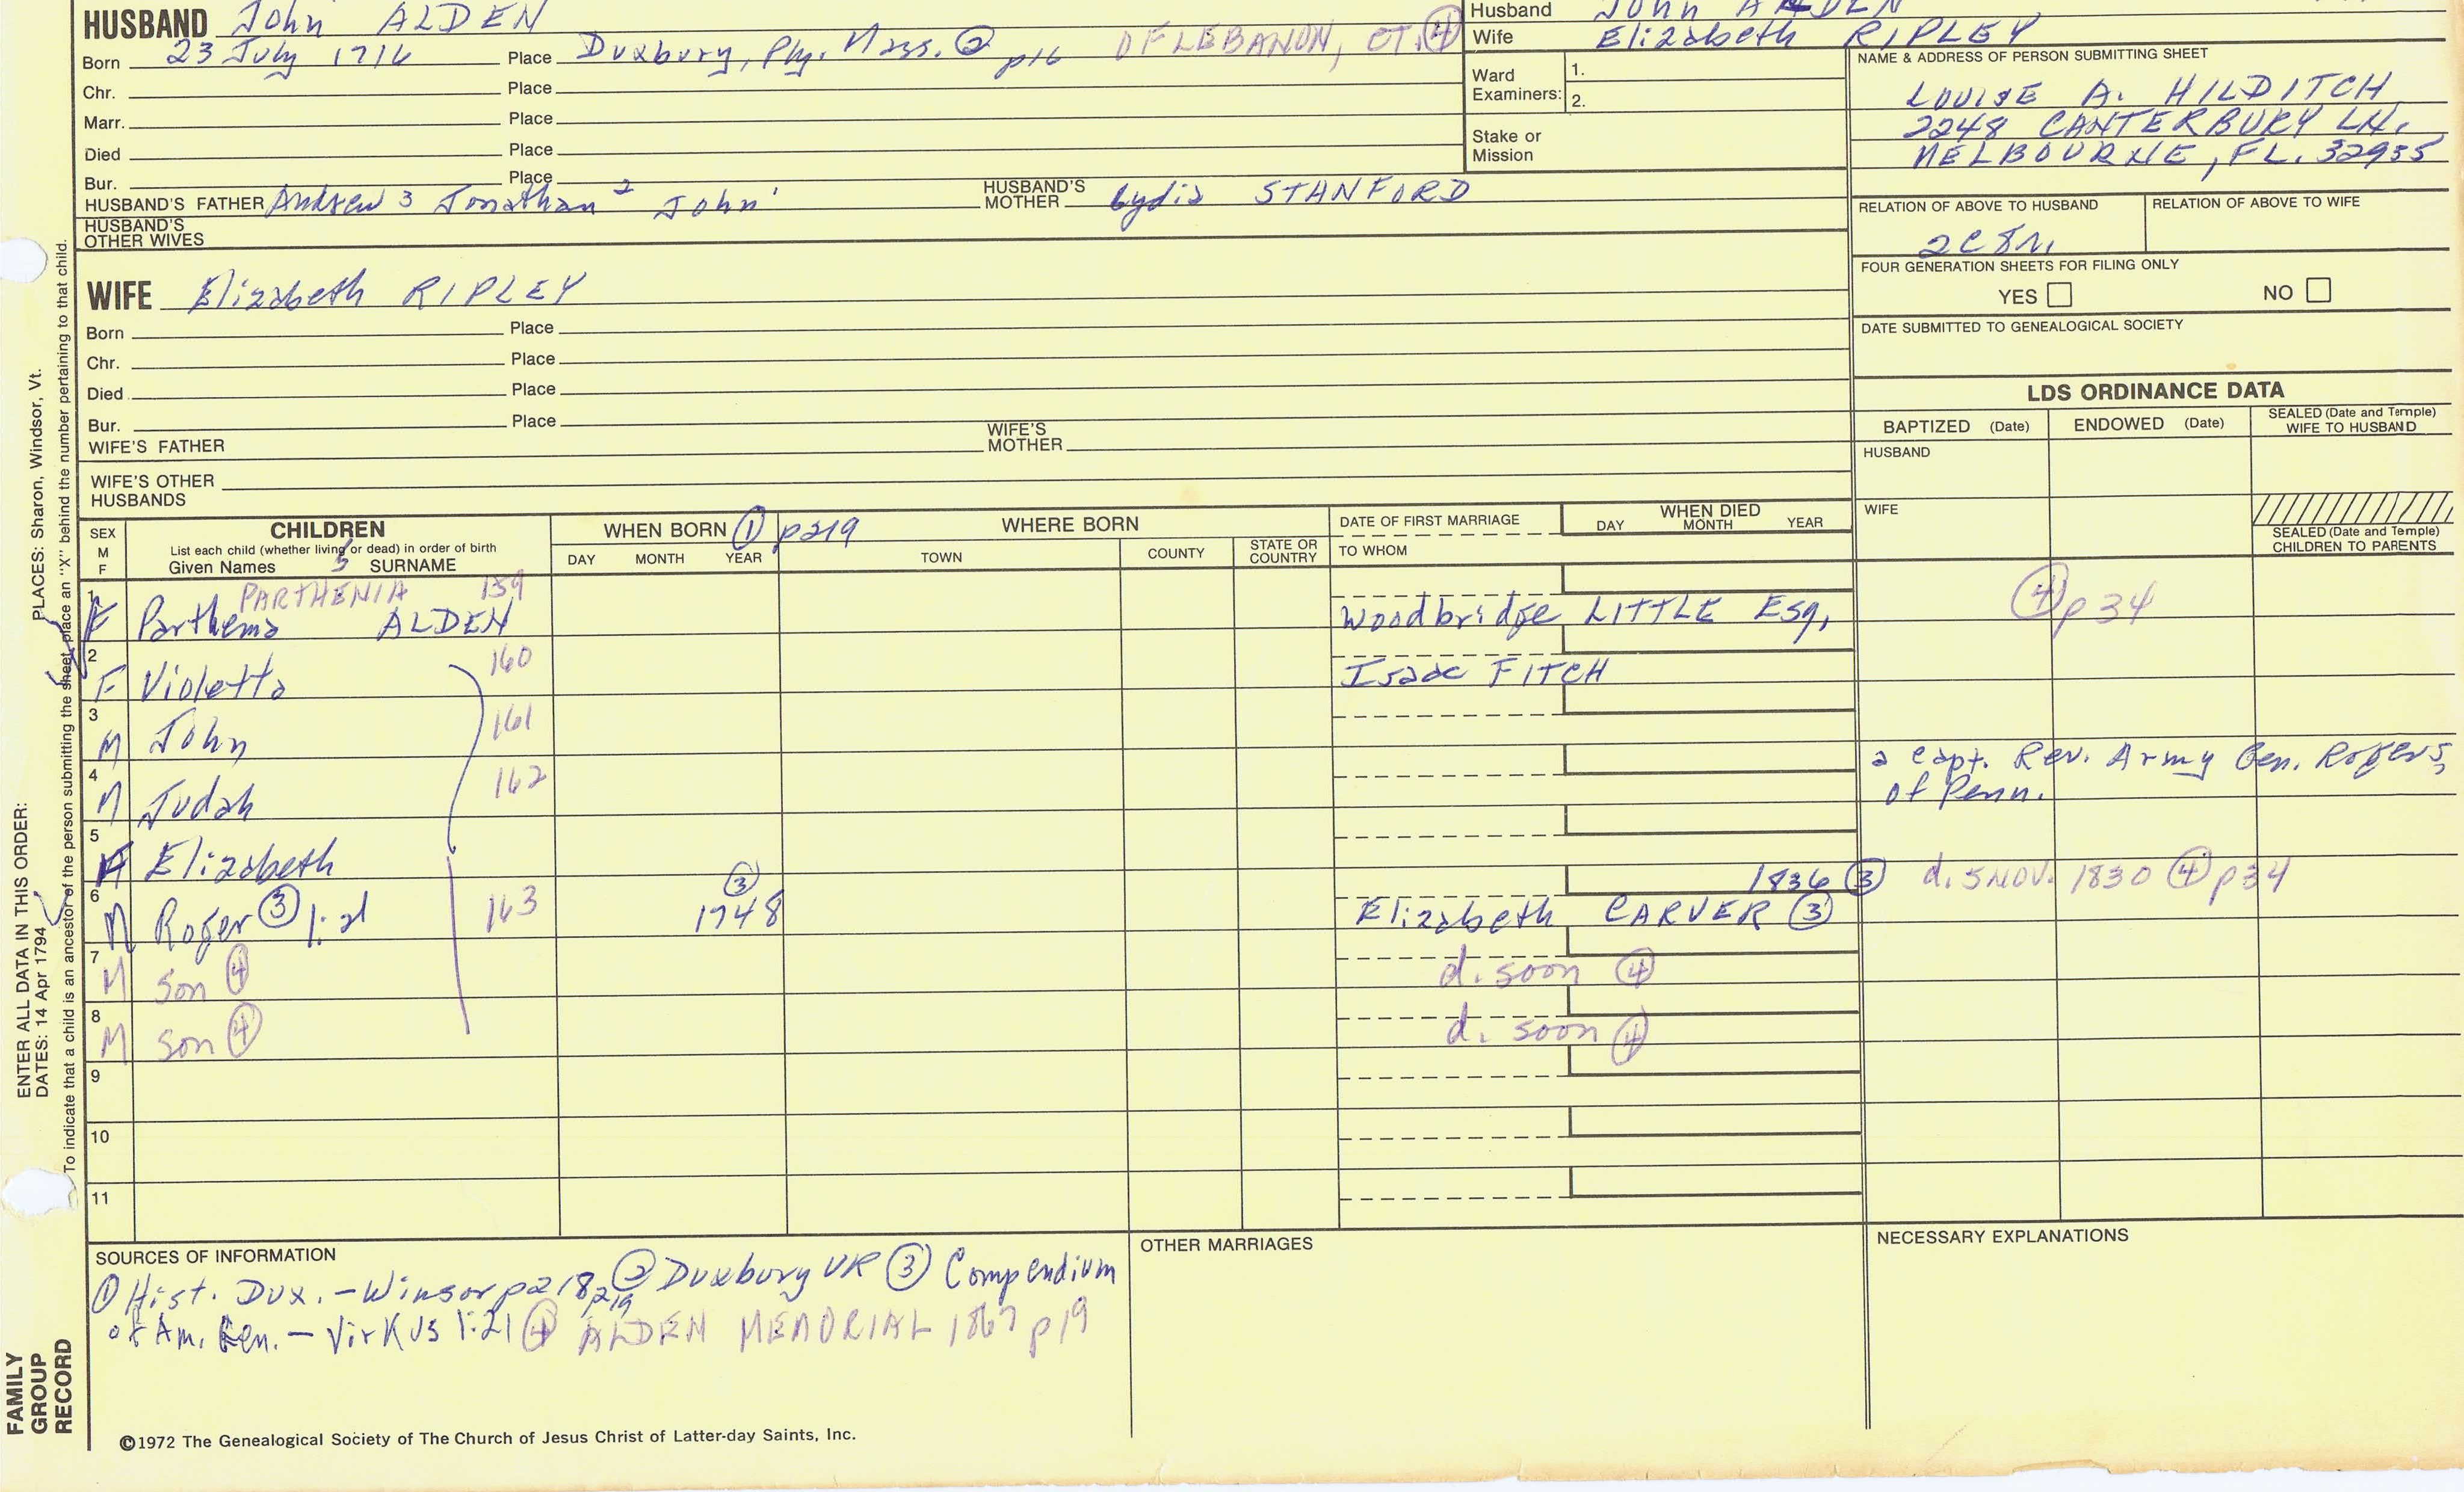 HUSBAND John ALDEN
Born 23 July 1716 Place Duxbury, Ply. Mass. ② p16 OF LEBANON, CT. ④
Chr. Place
Marr. Place
Died Place
Bur. Place
HUSBAND'S FATHER Andrew 3 Jonathan 2 John 1 HUSBAND'S MOTHER Lydia STANFORD
HUSBAND'S OTHER WIVES
Husband John ALDEN
Wife Elizabeth RIPLEY
Ward Examiners: 1.
2.
Stake or Mission
NAME & ADDRESS OF PERSON SUBMITTING SHEET
LOUISE A. HILDITCH
2248 CANTERBURY LN.
MELBOURNE, FL. 32935
RELATION OF ABOVE TO HUSBAND RELATION OF ABOVE TO WIFE
2C8R.
FOUR GENERATION SHEETS FOR FILING ONLY
YES NO
DATE SUBMITTED TO GENEALOGICAL SOCIETY
WIFE Elizabeth RIPLEY
Born Place
Chr. Place
Died Place
Bur. Place
WIFE'S FATHER WIFE'S MOTHER
WIFE'S OTHER HUSBANDS
LDS ORDINANCE DATA
BAPTIZED (Date) ENDOWED (Date) SEALED (Date and Temple) WIFE TO HUSBAND
HUSBAND
WIFE
SEALED (Date and Temple) CHILDREN TO PARENTS
SEX M F
CHILDREN
List each child (whether living or dead) in order of birth
Given Names 5 SURNAME
WHEN BORN ① p219 WHERE BORN
DAY MONTH YEAR TOWN COUNTY STATE OR COUNTRY
DATE OF FIRST MARRIAGE
TO WHOM
WHEN DIED
DAY MONTH YEAR
1 PARTHENIA 159
F Parthema ALDEN Woodbridge LITTLE Esq. ④ p34
2 160
F Violetta Isaac FITCH
3 161
M John
4 162 a capt. Rev. Army Gen. Rogers,
M Judah of Penn.
5
F Elizabeth
6 163 ③ 1836 ③ d. 5 NOV. 1830 ④ p34
M Roger ③ 1:21 1748 Elizabeth CARVER ③
7
M son ④ d. soon ④
8
M son ④ d. soon ④
9
10
11
SOURCES OF INFORMATION
① Hist. Dux. - Winsor p218 p219 ② Duxbury VR ③ Compendium
of Am. Gen. - Virkus 1:21 ④ ALDEN MEMORIAL 1867 p19
OTHER MARRIAGES
NECESSARY EXPLANATIONS
©1972 The Genealogical Society of The Church of Jesus Christ of Latter-day Saints, Inc.
FAMILY
GROUP
RECORD
ENTER ALL DATA IN THIS ORDER:
PLACES: Sharon, Windsor, Vt.
DATES: 14 Apr 1794
To indicate that a child is an ancestor of the person submitting the sheet, place an "X" behind the number pertaining to that child.